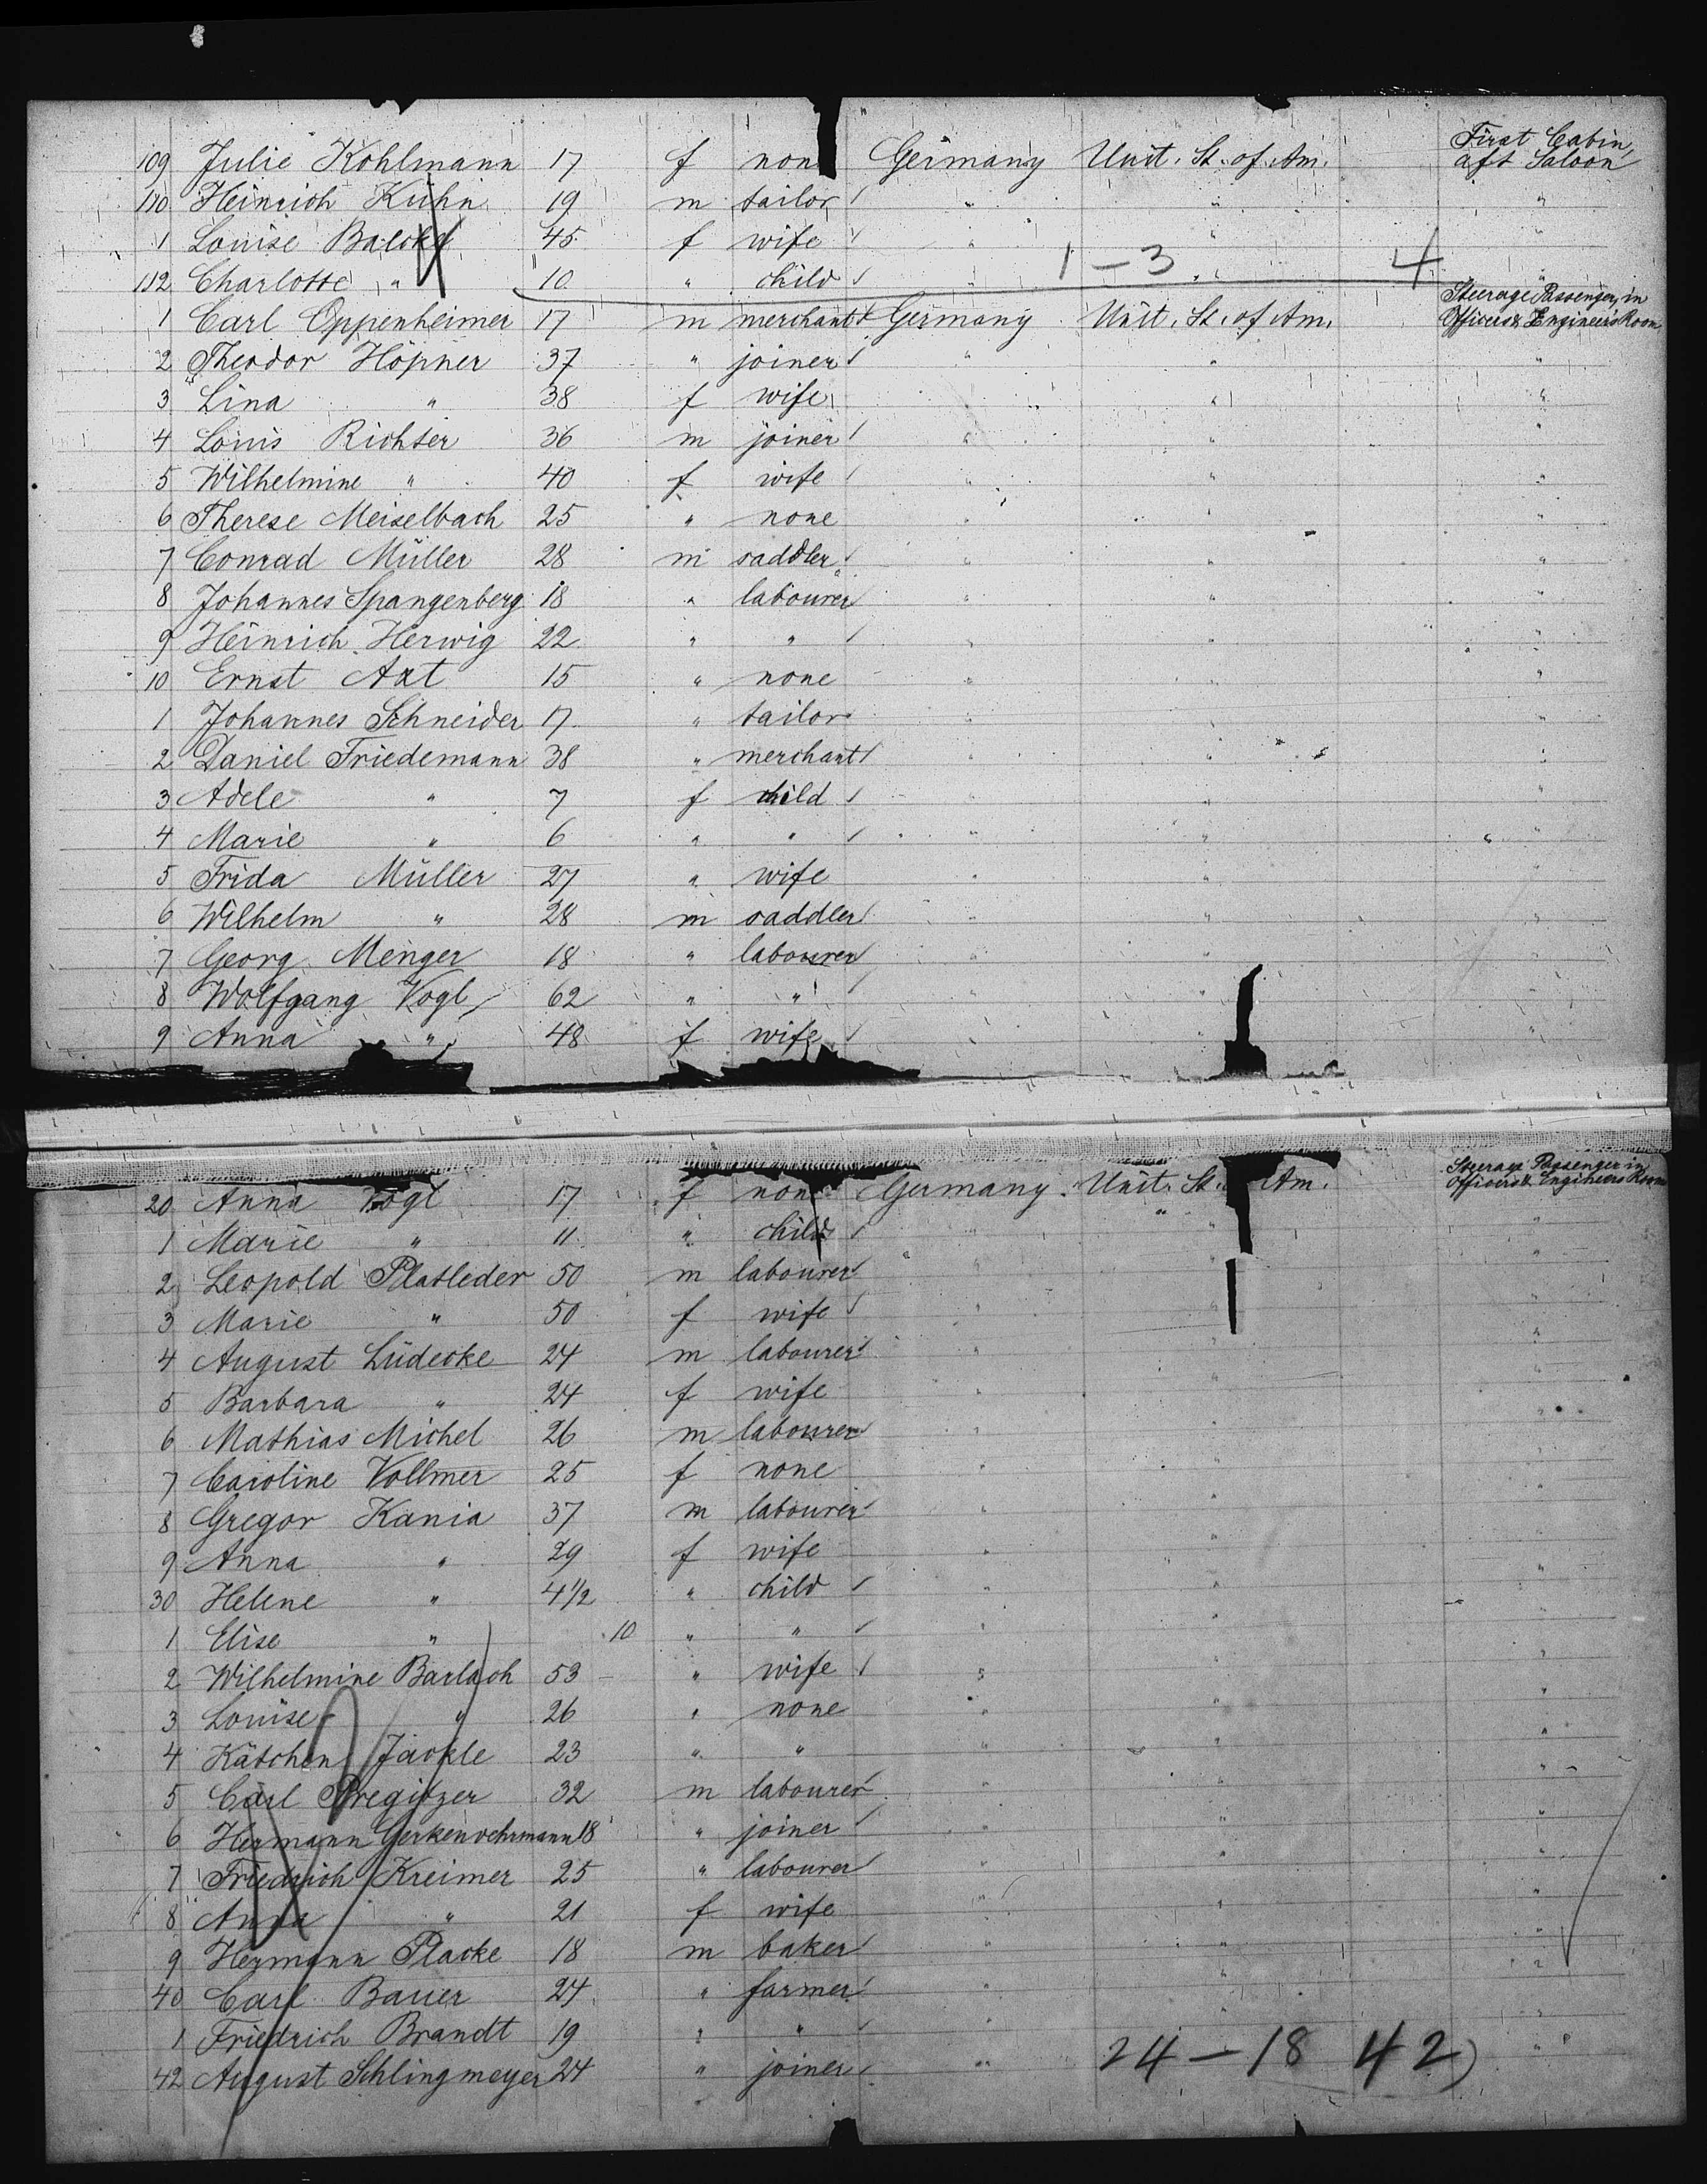 109 Julie Kohlmann 17 f none Germany Unit. St. of Am. First Cabin aft Saloon
110 Heinrich Kühn 19 m tailor " " "
1 Louise 45 f wife " " "
112 Charlotte " 10 " child " " "
1 – 3 4
1 Carl Oppenheimer 17 m merchant Germany Unit. St. of Am. Steerage Passenger, in Officers & Engineers Room
2 Theodor Höpner 37 " joiner " " "
3 Lina " 38 f wife " " "
4 Louis Richter 36 m joiner " " "
5 Wilhelmine " 40 f wife " " "
6 Therese Meiselbach 25 " none " " "
7 Conrad Müller 28 m saddler " " "
8 Johannes Spangenberg 18 " labourer " " "
9 Heinrich Herwig 22 " " " " "
10 Ernst Axt 15 " none " " "
1 Johannes Schneider 17 " tailor " " "
2 Daniel Friedemann 38 " merchant " " "
3 Adele " 7 f child " " "
4 Marie " 6 " " " " "
5 Frida Müller 27 " wife " " "
6 Wilhelm " 28 m saddler " " "
7 Georg Menger 18 " labourer " " "
8 Wolfgang Vogl 62 " " " " "
9 Anna " 48 f wife " " "
20 Anna Vogl 17 f none Germany Unit. St. Am. Steerage Passenger in Officers & Engineers Room
1 Marie " 11 " child " " "
2 Leopold Platleder 50 m labourer " " "
3 Marie " 50 f wife " " "
4 August Lüdecke 24 m labourer " " "
5 Barbara " 24 f wife " " "
6 Mathias Michel 26 m labourer " " "
7 Caroline Vollmer 25 f none " " "
8 Gregor Kania 37 m labourer " " "
9 Anna " 29 f wife " " "
30 Helene " 4 1/2 " child " " "
1 Elise " 10 " " " " "
2 Wilhelmine Barlach 53 " wife " " "
3 Louise " 26 " none " " "
4 Kätchen Jackle 23 " " " " "
5 Carl Pregitzer 32 m labourer " " "
6 Hermann 18 " joiner " " "
7 Friedrich Kreimer 25 " labourer " " "
8 Anna " 21 f wife " " "
9 Hermann Placke 18 m baker " " "
40 Carl Bauer 24 " farmer " " "
1 Friedrich Brandt 19 " " " " "
42 August Schlingmeyer 24 " joiner " "
24 – 18 42